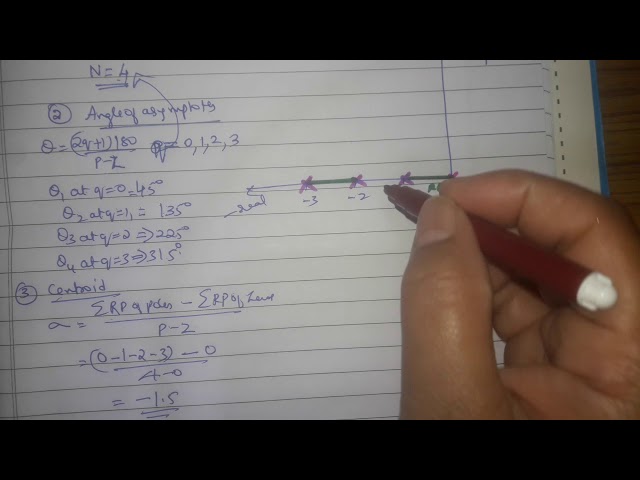 N = 4
② Angle of asymptotes
θ = (2q+1)180 / P-Z q = 0, 1, 2, 3
θ₁ at q=0 = 45°
θ₂ at q=1, = 135°
θ₃ at q=2 ⇒ 225°
θ₄ at q=3 ⇒ 315°
real
-3 -2
③ Centroid
σ = ΣRP of poles - ΣRP of zeros / P-Z
= (0-1-2-3) - 0 / 4-0
= -1.5